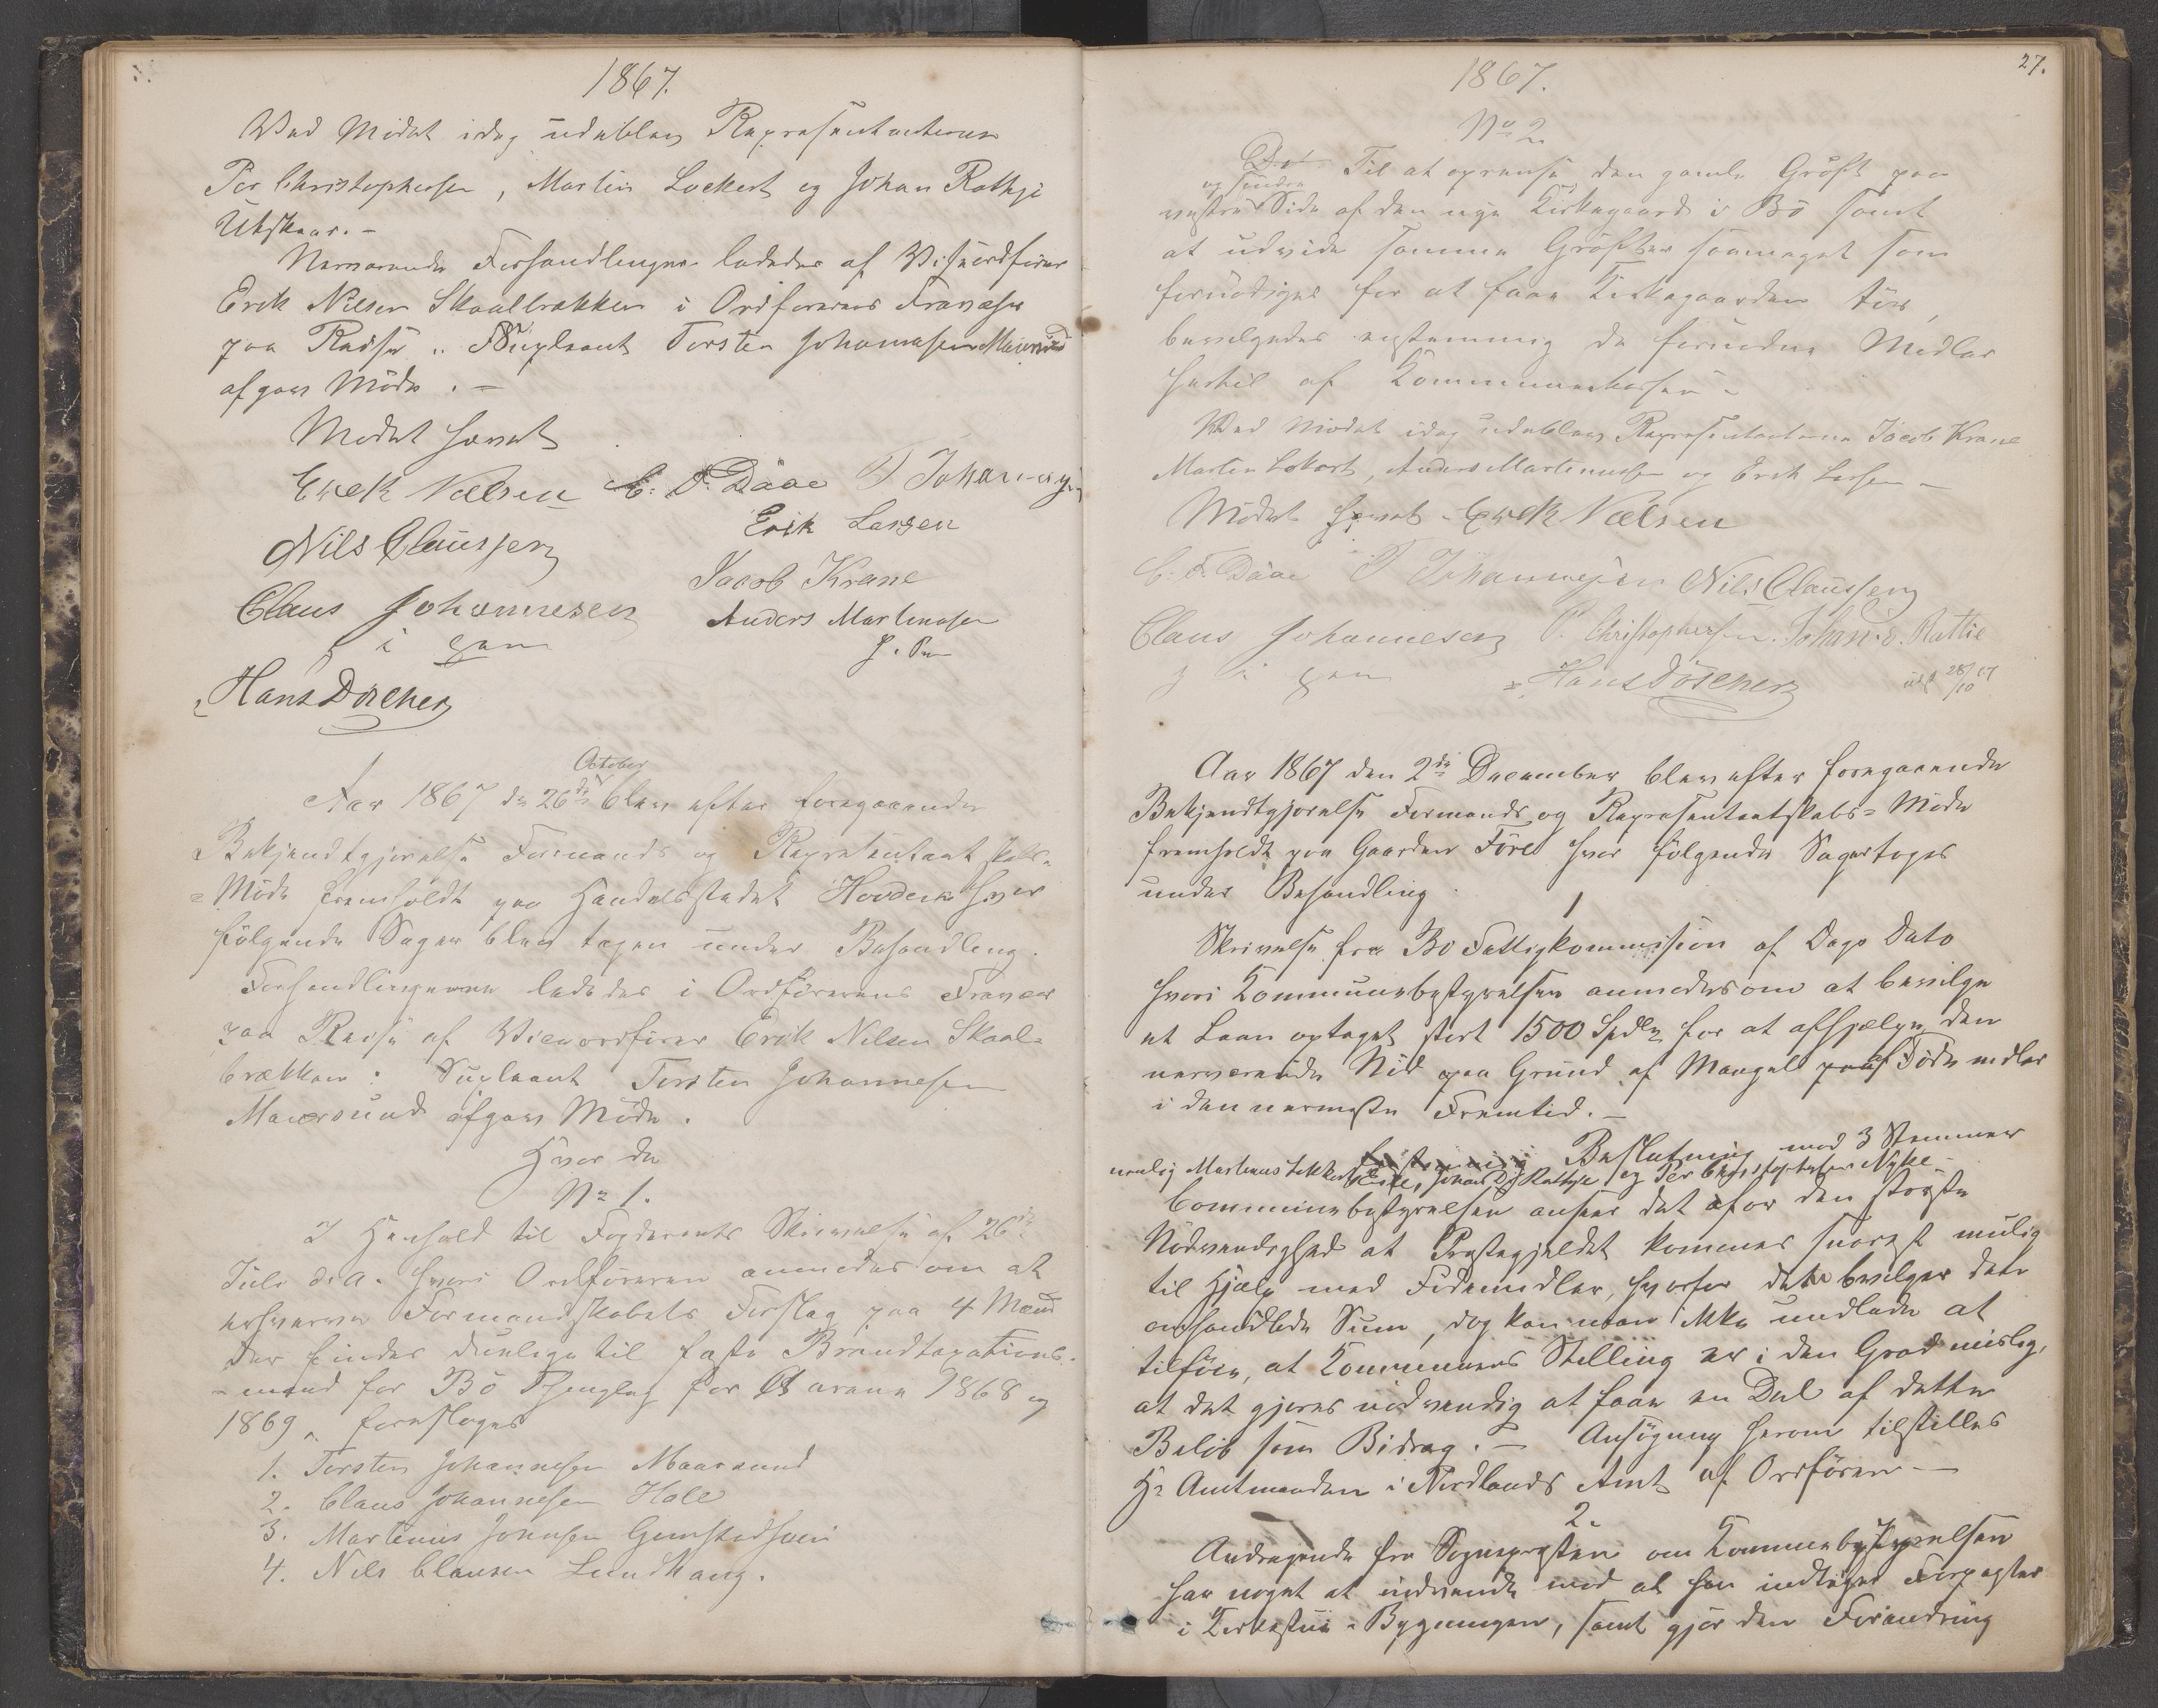 1867.
Ved Mödet idag udeblev Repræsentanterne
Per Christophersen, Martin Lockert og Johan Rathje
Utskaar. –
Nærværende Forhandlinger lededes af Viseordförer
Erik Nilsen Skaalbrækken i Ordförerens Fravær
paa Reise. Supleant Torsten Johannesen Maarsund
afgav Möde. –
Mödet hævet
Erek Nælsen C: F. Dåae T Johannesen
Nils Claussen Erik Larsen
Claus Johannesen Jacob Krane
i gen Anders Martinusen
Hans Dörcher
October
Aar 1867 d. 26de blev efter foregaaende
Bekjendtgjørelse Formands og Repræsentantskabs
= Möde fremholdt paa Handelsstedet Hovden hvor
fölgende Sager blev tagen under Behandling.
Forhandlingerne lededes i Ordförerens Fravær
paa Reise af Viceordförer Erik Nilsen Skaal-
brækken: Supleant Torsten Johannesen
Maarsund afgav Möde.
Hvor da
No 1.
I Henhold til Fogderiets Skrivelse af 26de
Juli d. A. hvori Ordföreren anmodes om at
erhverve Formandskabets Forslag paa 4 Mænd
der findes duelige til faste Brandtaxations-
= mænd for Bö Thinglag for Aarene 1868 og
1869, foresloges
1. Torsten Johannesen Maarsund
2. Claus Johannesen Hole
3. Martinus Jonsen
4. Nils Clausen Lundhaug.
27.
1867.
No 2.
Til at oprense den gamle Gröft paa
og söndre
vestre Side af den nye Kirkegaard i Bö samt
at udvide samme Gröfter saameget som
fornödiges for at faae Kirkegaarden tör,
bevilgedes enstemmig de fornödne Midler
hertil af Kommunekassen –
Ved Mödet idag udeblev Repræsentanterne Jacob Krane
Martin Lokert, Anders Martinusen og Erik Larsen –
Mödet hævet – Erek Nælsen
C: F. Dåae T Johannesen Nils Claussen
Claus Johannesen P. Christophersen. Johan D. Rattie
i gen Hans Dörcher 28/10 67
Aar 1867 den 2de December blev efter foregaaende
Bekjendtgjörelse Formands og Repræsentantskabs- Möde
fremholdt paa Gaarden Före hvor fölgende Sager toges
under Behandling
1
Skrivelse fra Bö Fattigkommission af Dags Dato
hvori Kommunebestyrelsen anmodes om at bevilge
et Laan optaget stort 1500 Spdlr for at afhjælpe den
nærværende Nöd paa Grund af Mangel paa Föde midler
i den nærmeste Fremtid. –
Beslutning med 3 Stemmer
nemlig Martinus Lokkert Johan D. Rathje og Per Christophersen Nyke –
Communebestyrelsen anseer det for den störste
Nödvendighed at Præstegjeldet kommes snarest mulig
til Hjælp med Födemidler, hvorfor dette bevilger den
omhandlede Sum, dog kan man ikke undlade at
tilföie, at Kommunens Stilling er i den Grad mislig,
at det gjöres nödvendig at faae en Del af dette
Belöb som Bidrag. – Ansögning herom tilstilles
Hr Amtmanden i Nordlands Amt af Ordföreren –
2.
Andragende fra Sognepresten om Kommunebestyrelsen
har noget at indvende mod at han indtager Forpagter
i Kirkestue - Bygningen, samt gjör den Forandring